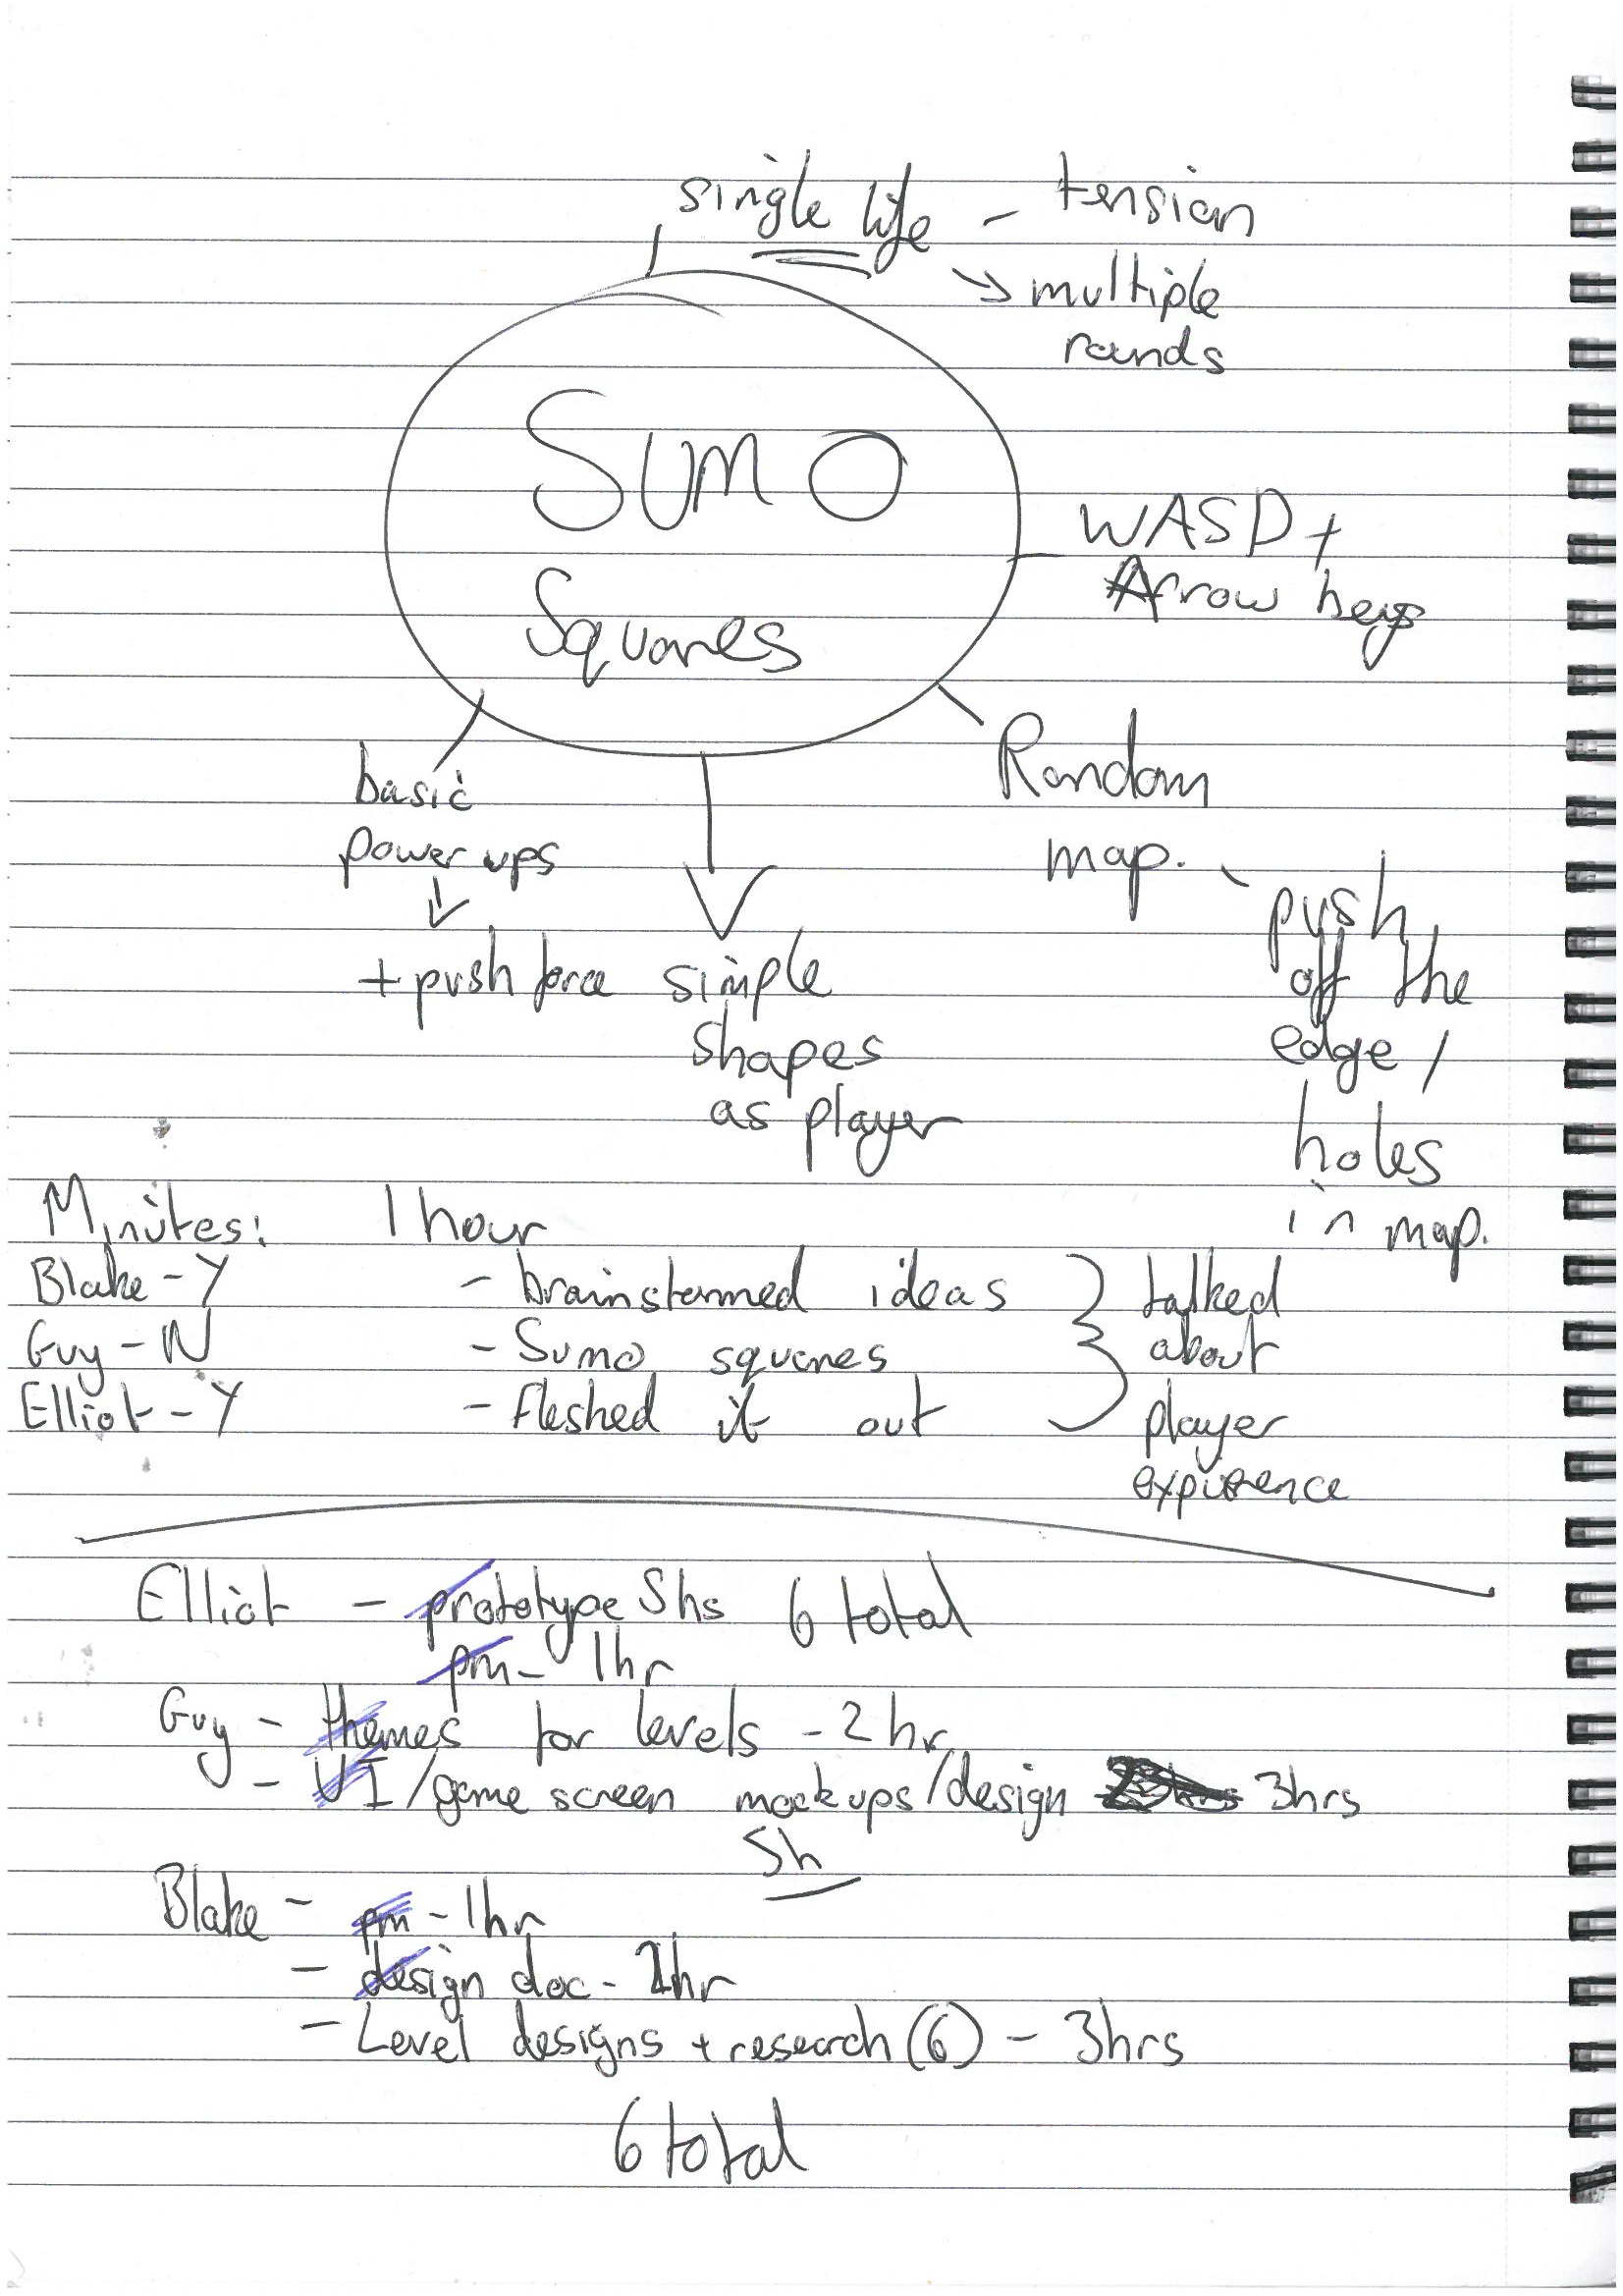 single life - tension
→ multiple
rounds
SUMO
Squares
WASD +
Arrow keys
Random
map.
push
off the
edge /
holes
in map.
basic
power ups
↓
+ push force
simple
shapes
as player
Minutes: 1 hour
Blake - Y
Guy - N
Elliot - Y
- brainstormed ideas
- Sumo squares
- fleshed it out
talked
about
player
experience
Elliot - prototype 5hs 6 total
pm - 1hr
Guy - themes for levels - 2hr
- UI/game screen mockups/design 3hrs
5h
Blake - pm - 1hr
- design doc - hr
- Level designs + research (6) - 3hrs
6 total